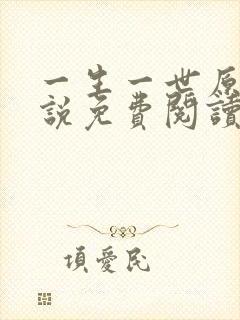 一生一世原
說免費閱讀
項愛民